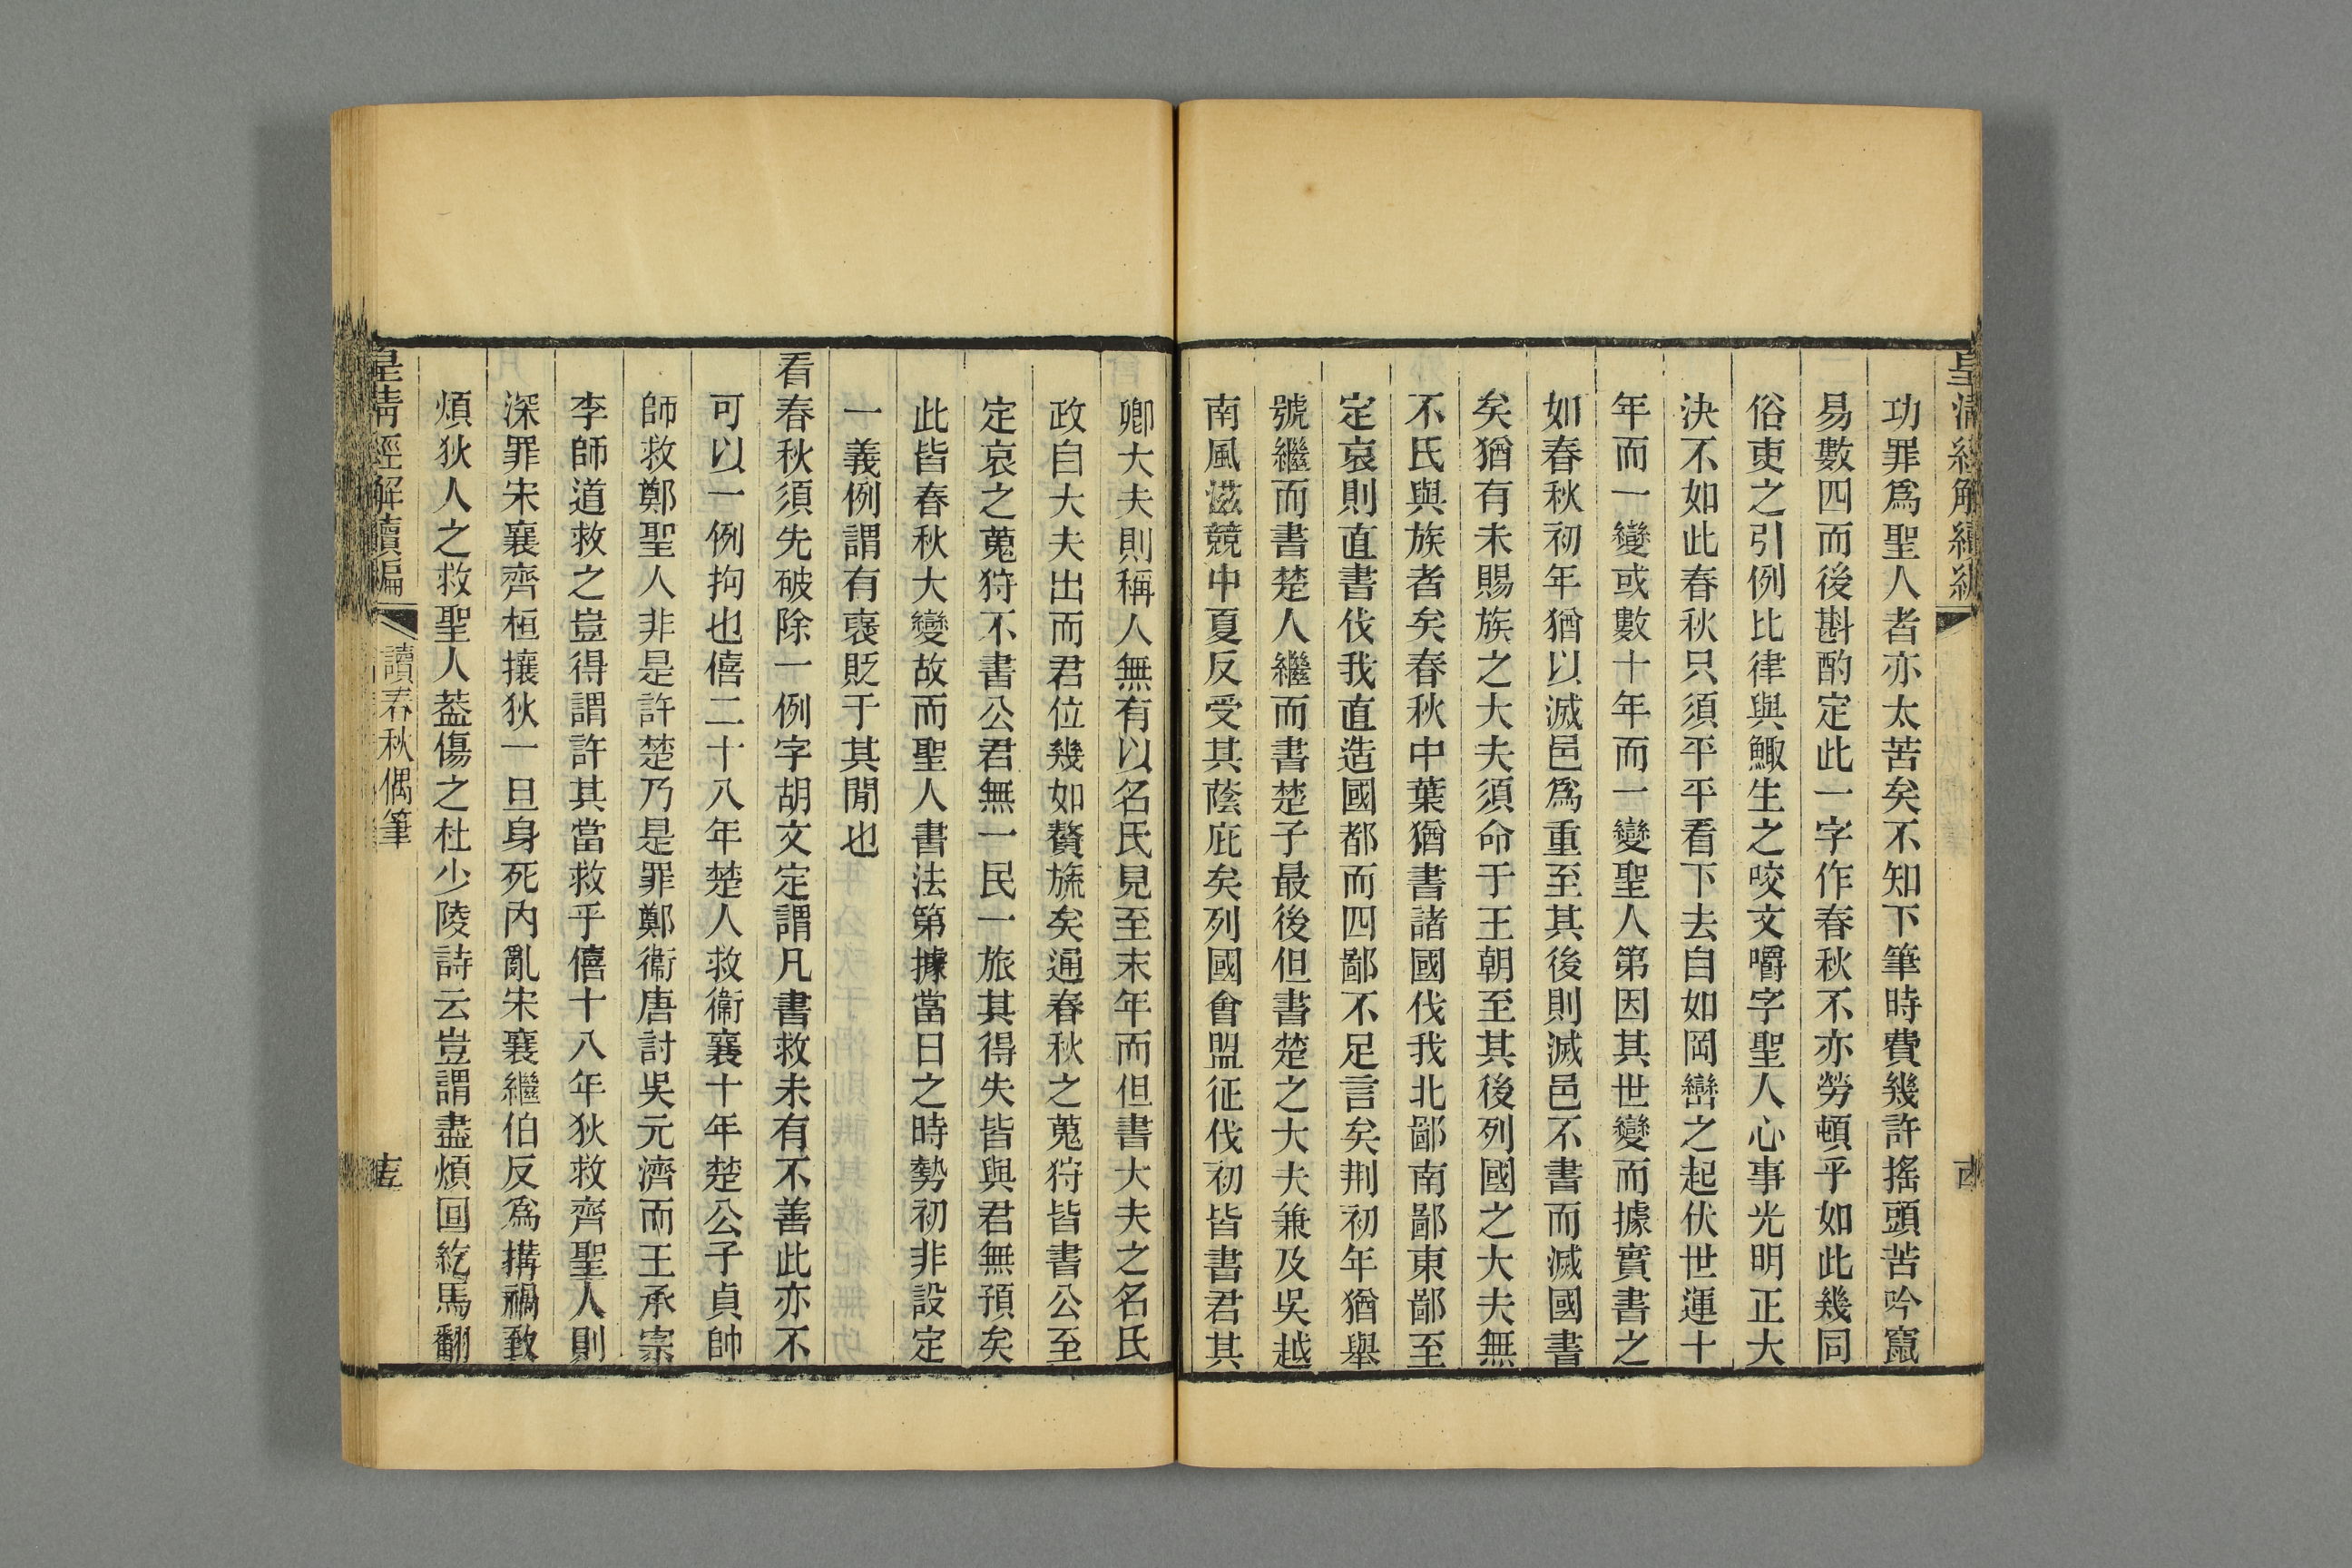 皇清經解續編
功罪爲聖人者亦太苦矣不知下筆時費幾許搖頭苦吟竄
易數四而後斟酌定此一字作春秋不亦勞頓乎如此幾同
俗吏之引例比律與鯫生之咬文嚼字聖人心事光明正大
決不如此春秋只須平平看下去自如岡巒之起伏世運十
年而一變或數十年而一變聖人第因其世變而據實書之
如春秋初年猶以滅邑爲重至其後則滅邑不書而滅國書
矣猶有未賜族之大夫須命于王朝至其後列國之大夫無
不氏與族者矣春秋中葉猶書諸國伐我北鄙南鄙東鄙至
定哀則直書伐我直造國都而四鄙不足言矣荆初年猶舉
號繼而書楚人繼而書楚子最後但書楚之大夫兼及吳越
南風滋競中夏反受其蔭庇矣列國會盟征伐初皆書君其
卿大夫則稱人無有以名氏見至末年而但書大夫之名氏
政自大夫出而君位幾如贅旒矣通春秋之蒐狩皆書公至
定哀之蒐狩不書公君無一民一旅其得失皆與君無預矣
此皆春秋大變故而聖人書法第據當日之時勢初非設定
一義例謂有襃貶于其閒也
看春秋須先破除一例字胡文定謂凡書救未有不善此亦不
可以一例拘也僖二十八年楚人救衞襄十年楚公子貞帥
師救鄭聖人非是許楚乃是罪鄭衞唐討吳元濟而王承宗
李師道救之豈得謂許其當救乎僖十八年狄救齊聖人則
深罪宋襄齊桓攘狄一旦身死內亂宋襄繼伯反爲搆禍致
煩狄人之救聖人葢傷之杜少陵詩云豈謂盡煩回紇馬翻
皇清經解續編
讀春秋偶筆